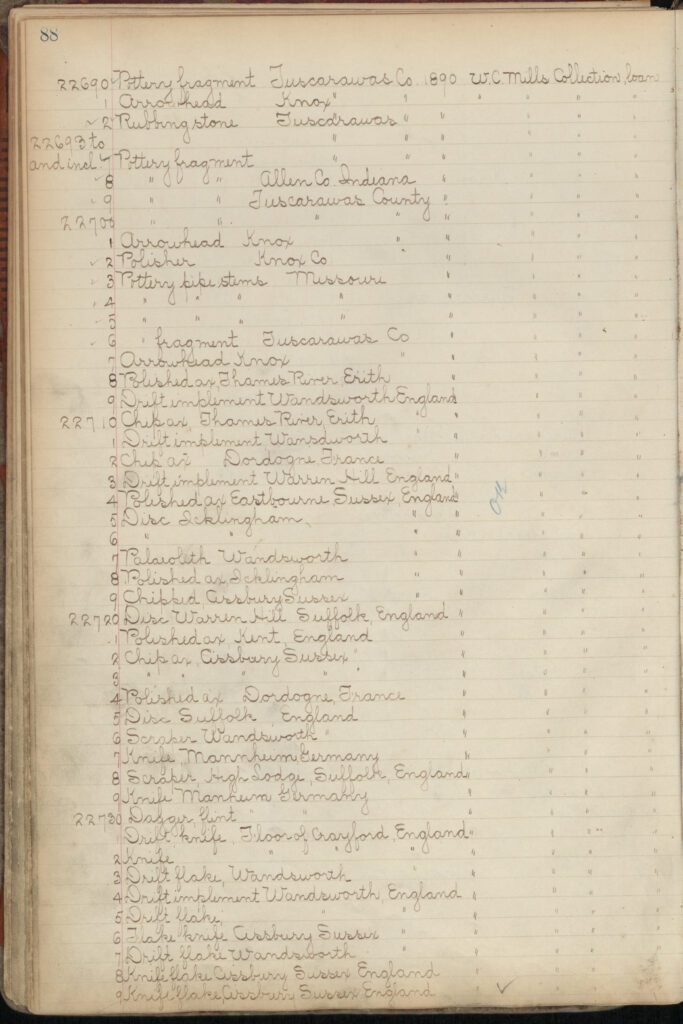 88
22690 Pottery fragment Tuscarawas Co. 1890 W.C. Mills Collection, loan
1 Arrowhead Knox " " " " " "
2 Rubbing stone Tuscarawas " " " " "
22693 to " " " " "
and incl. 7 Pottery fragment " " " " "
8 " " Allen Co. Indiana " " " "
9 " " Tuscarawas County " " " "
22700 " " " " " " " "
1 Arrowhead Knox " " " " "
2 Polisher Knox Co " " " "
3 Pottery pipe stems Missouri " " " "
4 " " " " " " " "
5 " " " " " " " "
6 " fragment Tuscarawas Co " " " "
7 Arrowhead Knox " " " " "
8 Polished ax, Thames River, Erith " " " "
9 Drift implement Wandsworth England " " "
22710 Chip ax, Thames River, Erith " " " " "
1 Drift implement Wansdworth " " " " "
2 Chip ax Dordogne France " " " "
3 Drift implement Warren Hill England " " " "
4 Polished ax Eastbourne Sussex, England " " "
5 Disc Icklingham, " " " "
OK
6 " " " " " "
7 Palaeolith Wandsworth " " " "
8 Polished ax, Icklingham " " " "
9 Chipped, Cissbury Sussex " " " "
22720 Disc Warren Hill Suffolk, England " " " "
1 Polished ax Kent, England " " " "
2 Chip ax, Cissbury Sussex " " " "
3 " " " " " " " "
4 Polished ax Dordogne, France " " " "
5 Disc Suffolk, England " " " "
6 Scraper Wandsworth " " " " "
7 Knife, Mannheim Germany " " " "
8 Scraper, High Lodge, Suffolk, England " " " "
9 Knife Manheim Germany " " " "
22730 Dagger, flint " " " " " "
Drift knife, Floor of Crayford, England " " " "
2 Knife " " " " " "
3 Drift flake, Wandsworth " " " "
4 Drift implement Wandsworth, England " " " "
5 Drift flake, " " " " "
6 Flake knife Cissbury Sussex " " " " "
7 Drift flake Wandsworth " " " " "
8 Knife flake Cissbury Sussex England " " " "
9 Knife flake Cissbury Sussex England " ✓ " " "